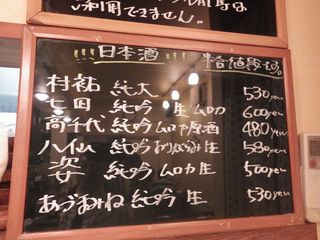 利用できません。
!!! 日本酒 !!! 半合値段です。
村祐 純大 530yen
七田 純吟 生 ムロカ 600yen
高千代 純吟 ムロカ原酒 480yen
八仙 純吟 おりがらみ 生 580yen
姿 純吟 ムロカ生 500yen
あづまみね 純吟 生 530yen